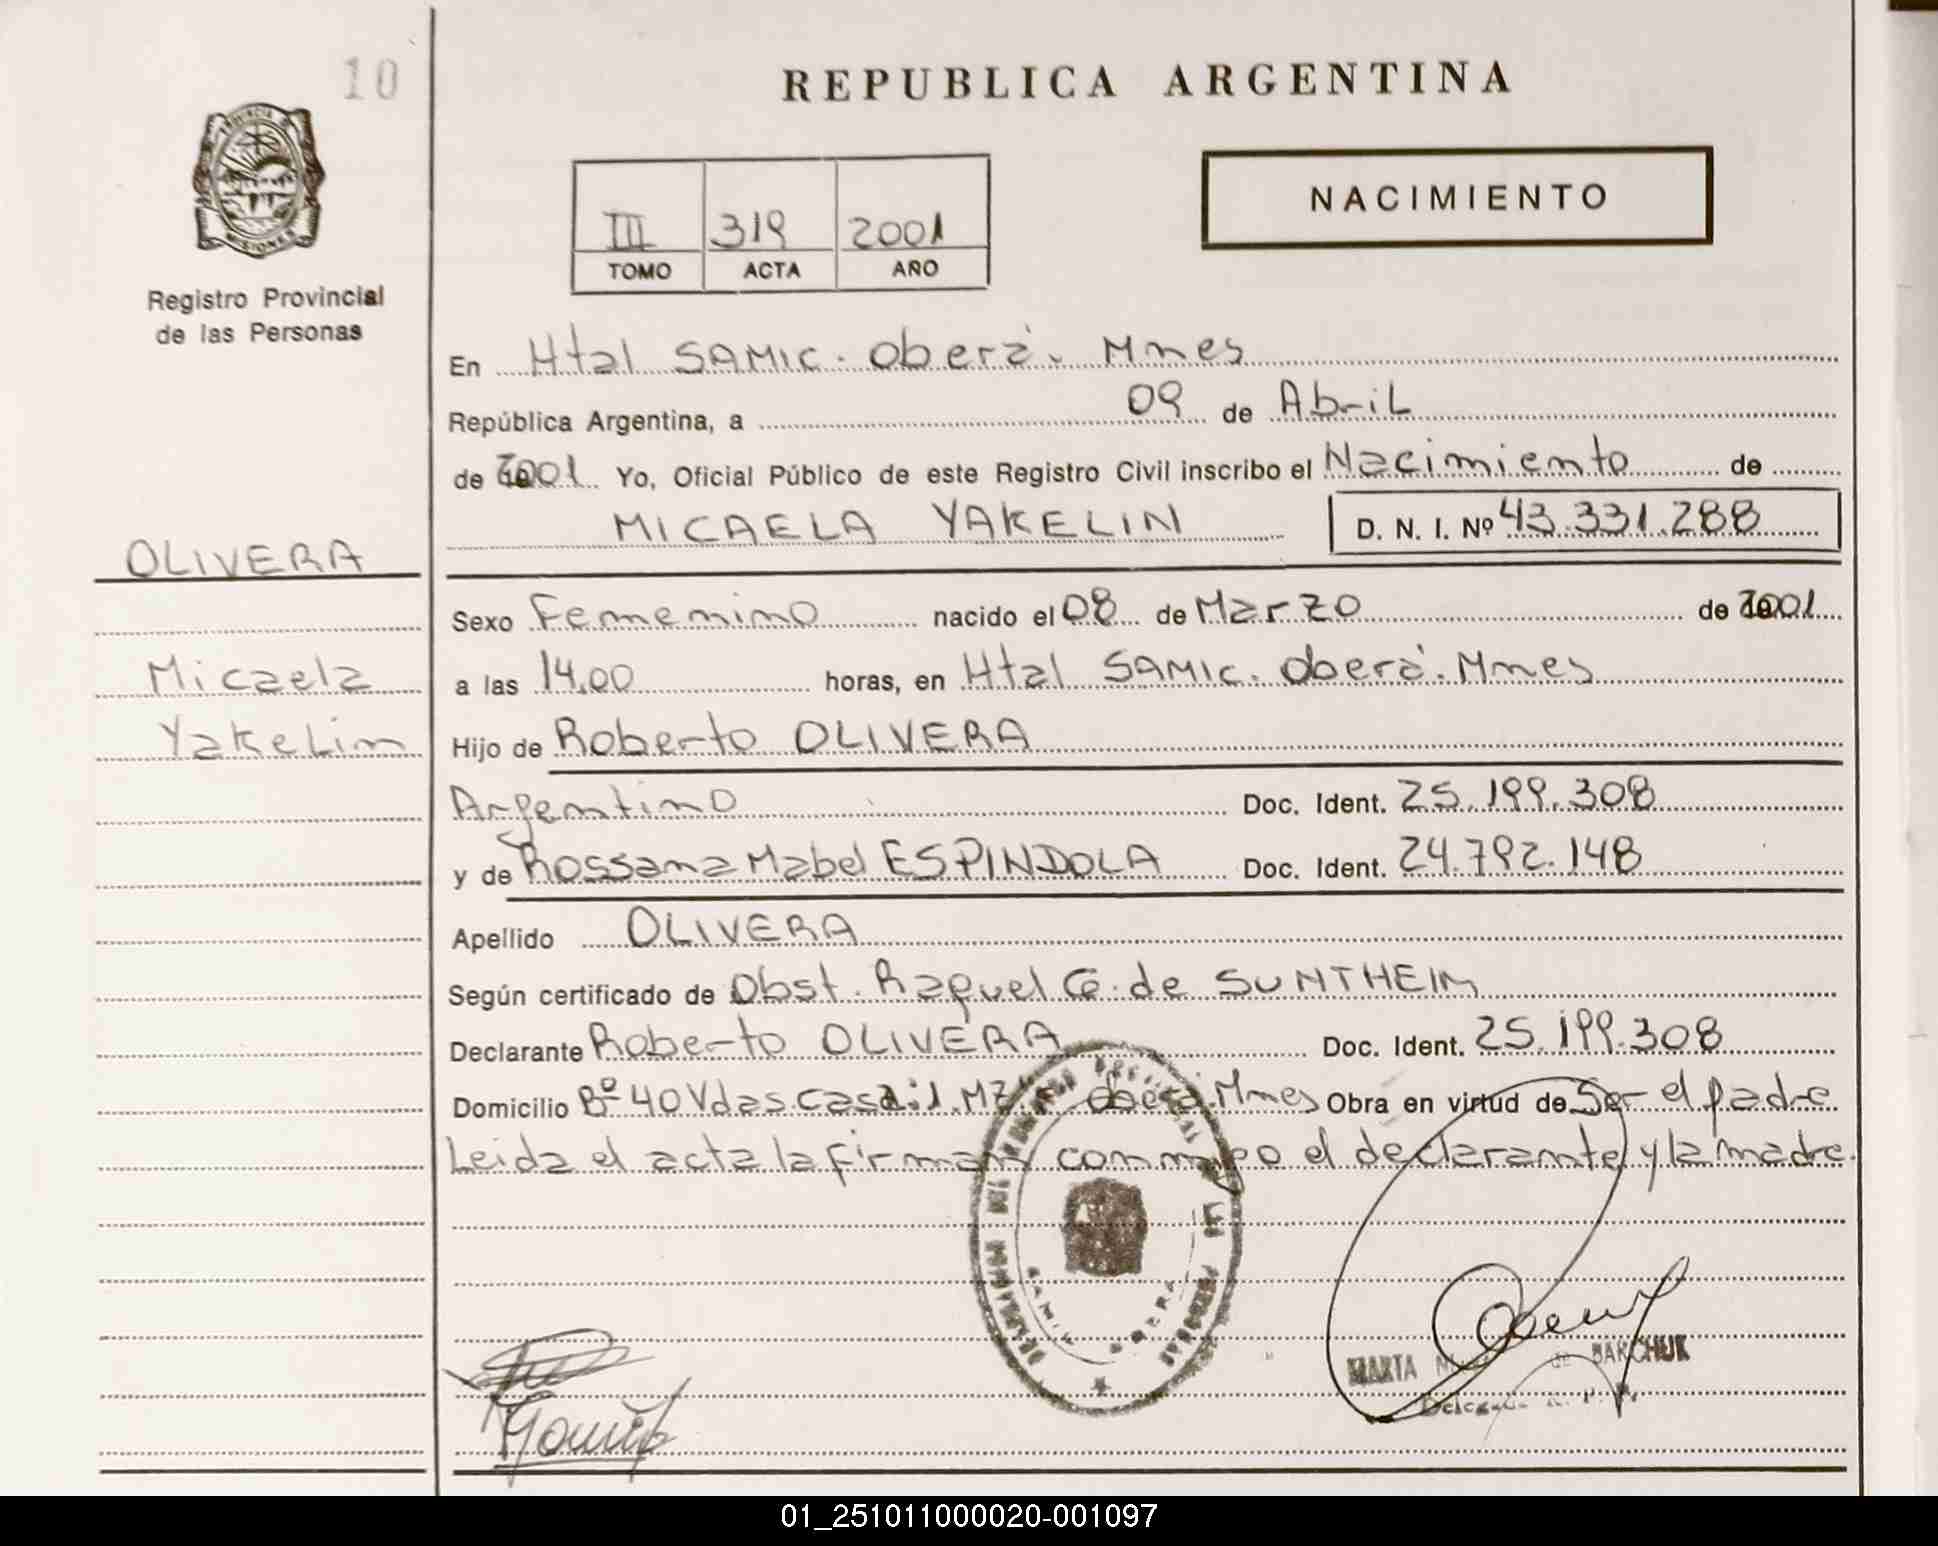 10
REPUBLICA ARGENTINA
NACIMIENTO
III 319 2001
TOMO ACTA AÑO
PROVINCIA DE
MISIONES
Registro Provincial
de las Personas
En Htal SAMIC. Oberá. Mnes
República Argentina, a 09 de Abril
de 2001 Yo, Oficial Público de este Registro Civil inscribo el Nacimiento de
MICAELA YAKELIN D. N. I. Nº 43.331.288
OLIVERA
Micaela
Yakelin
Sexo Femenino nacido el 08 de Marzo de 2001
a las 14,00 horas, en Htal SAMIC. Oberá. Mnes
Hijo de Roberto OLIVERA
Argentino Doc. Ident. 25.199.308
y de Rossana Mabel ESPINDOLA Doc. Ident. 24.792.148
Apellido OLIVERA
Según certificado de Obst. Raquel G. de SUNTHEIM
Declarante Roberto OLIVERA Doc. Ident. 25.199.308
Domicilio Bº 40 Vdas. casa:1. MZ Oberá. Mnes Obra en virtud de Ser el padre
Leida el acta la firman conmigo el declarante y la madre.
SAMIC
OBERA
MARTA de BARCHUK
01_251011000020-001097